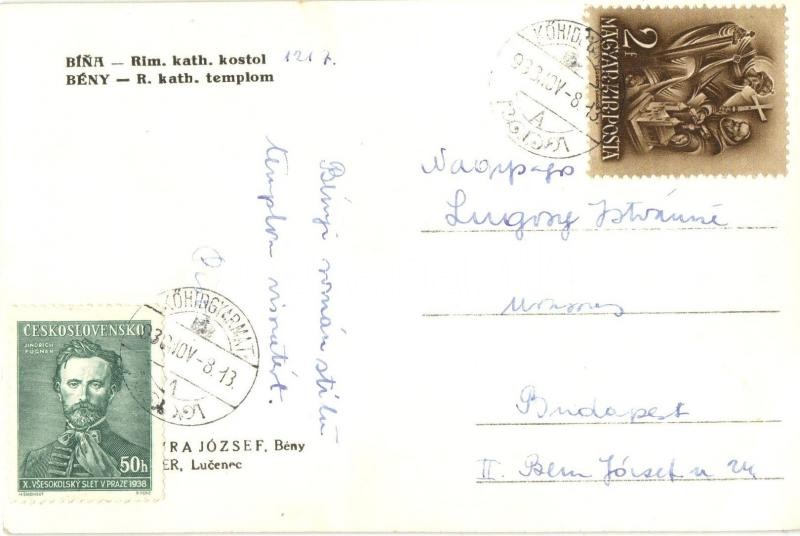 BÍŇA — Rim. kath. kostol
BÉNY — R. kath. templom
1217.
KŐHID
933 NOV-8.13
A
2f
MAGYAR·KIR·POSTA
Bényi román stilü
templom
Lugosy Istvánné
Budapest
II. Bem József u 24
KŐHIDGYARMAT
938 NOV-8.13
ČESKOSLOVENSKO
JINDŘICH
FÜGNER
50h
X. VŠESOKOLSKÝ SLET V PRAZE 1938
RA JÓZSEF, Bény
ER, Lučenec